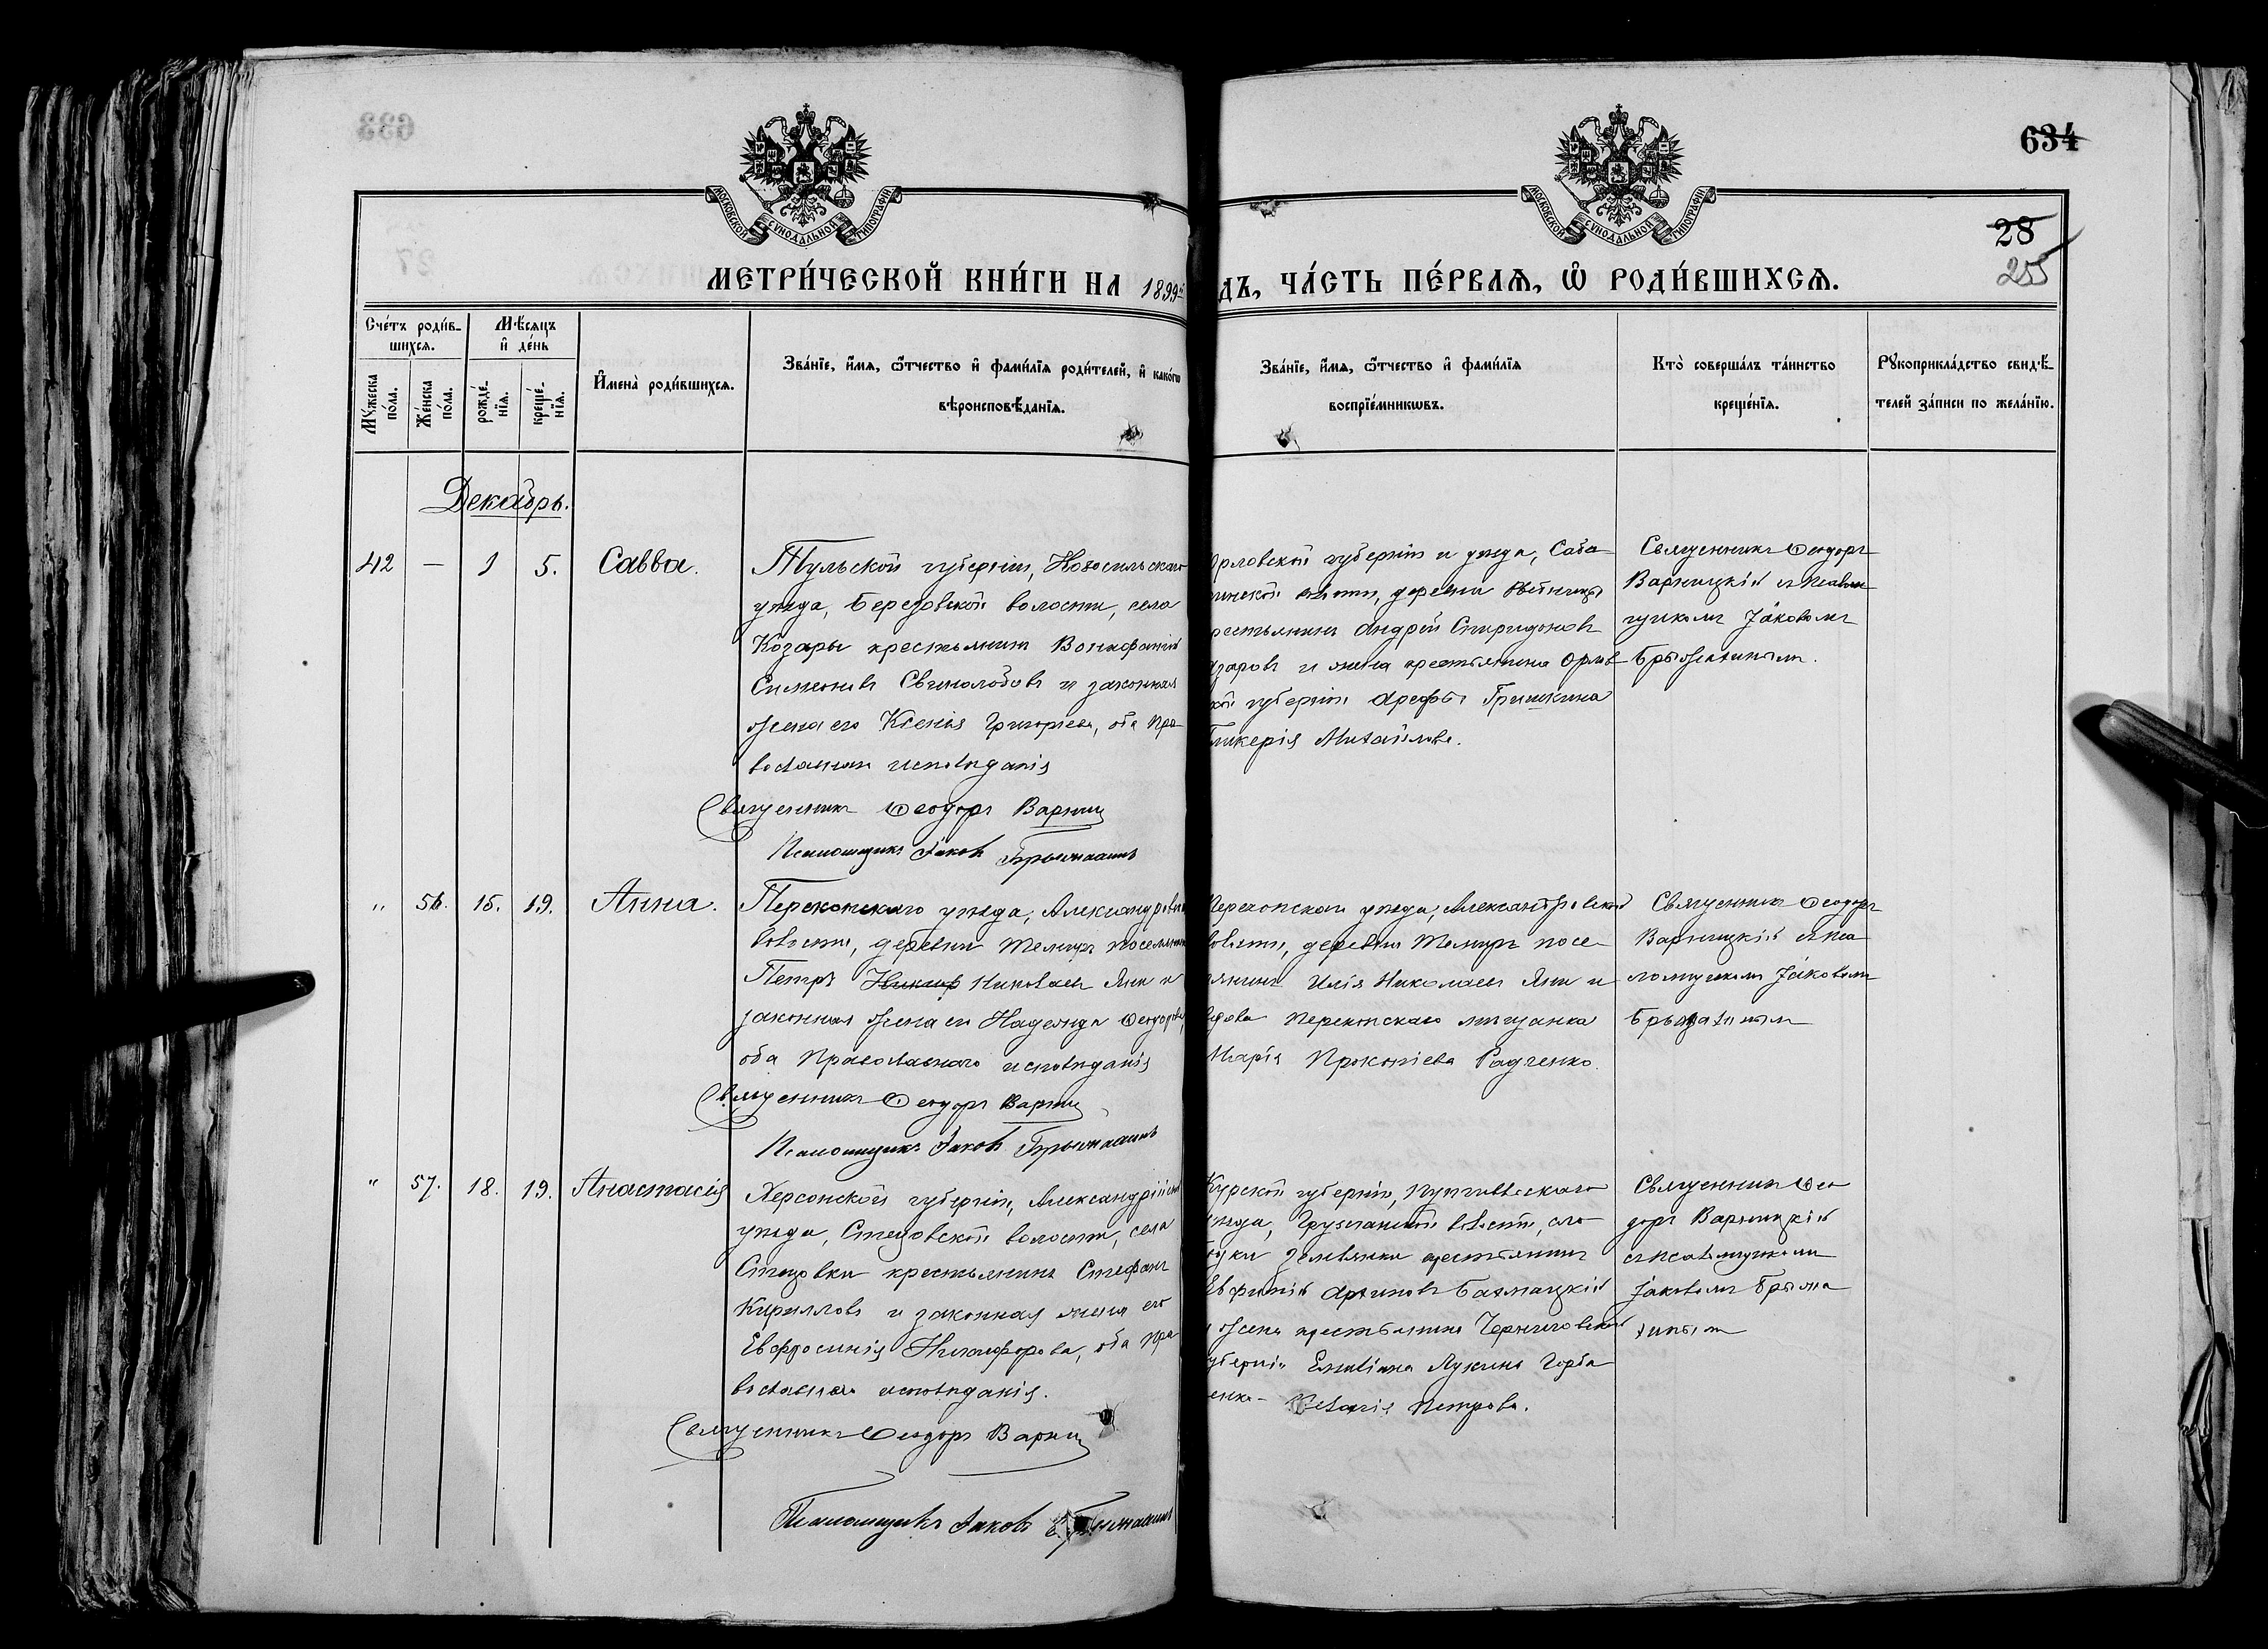 634
28
255
МОСКОВСКОЙ СѴНОДАЛЬНОЙ ТИПОГРАФІИ
МОСКОВСКОЙ СѴНОДАЛЬНОЙ ТИПОГРАФІИ
МЕТРИ́ЧЕСКОЙ КНИ́ГИ НА 1899й
ДЪ, ЧА́СТЬ ПЕ́РВАѦ, Ѽ РОДИ́ВШИХСѦ.
Сче́тъ роди́в-
шихся.
Мꙋ́жеска по́ла.
Же́нска по́ла.
Мѣ́сяцъ и҆ де́нь
рожде́-
нїя.
креще́-
нїя.
И҆мена̀ роди́вшихся.
Зва́нїе, и҆́мѧ, ѻ҆́тчество и҆ фами́лїѧ роди́телей, и҆ како́гѡ
вѣроисповѣ́данїѧ.
Зва́нїе, и҆́мѧ, ѻ҆́тчество и҆ фами́лїѧ
воспрїе́мникѡвъ.
Кто̀ соверша́лъ та́инство
креще́нїѧ.
Рꙋкоприкла́дство свидѣ́-
телей за́писи по жела́нїю.
Декабрь.
42 — 1 5. Савва.
Тульской губерніи, Новосильскаго
уѣзда, Березовской волости, села
Козары крестьянинъ Вонифатій
Симеоновъ Свинолобовъ и законная
жена его Ксенія Григорьева, оба пра-
вославнаго исповѣданія
Священникъ Ѳеодоръ Варниц
Псаломщикъ Іаковъ
рловской губерніи и уѣзда, Саба-
инской волости, деревни
рестьянинъ Андрей Спиридоновъ
азаровъ и жена крестьянина Орлов-
кой губерніи Арефы Гришкина
Гликерія Михайлова.
Священникъ Ѳеодоръ
Варницкій съ псалом-
щикомъ Іаковомъ
" 56. 15. 19. Анна.
Перекопскаго уѣзда, Александровск
волости, деревни Темиръ поселянинъ
Петръ Николаевъ Яни и
законная жена его Надежда Ѳеодорова,
оба Православнаго исповѣданія
Священникъ Ѳеодоръ Варниц
Псаломщикъ Іаковъ
Перекопскаго уѣзда, Александровской
волости, деревни Темиръ посе-
лянинъ Илія Николаевъ Яни и
вдова Перекопскаго мѣщанка
Марія Прокопіева Радченко.
Священникъ Ѳеодоръ
Варницкій съ пса-
ломщикомъ Іаковомъ
" 57. 18. 19. Анастасія
Херсонской губерніи, Александрійскаго
уѣзда, Стецовской волости, села
Стецовки крестьянинъ Стефанъ
Кирилловъ и законная жена его
Евфросинія Никифорова, оба пра-
вославнаго исповѣданія.
Священникъ Ѳеодоръ Варниц
Псаломщикъ Іаковъ
Курской губерніи, Путивльскаго
уѣзда, Грузчанской волости, сло-
боды крестьянинъ
Евфимій Архиповъ Бахмацкій
и жена крестьянина Черниговской
губерніи Емиліана Лукина Горба-
енка - Петрова.
Священникъ Ѳео-
доръ Варницкій
съ псаломщикомъ
Іаковомъ